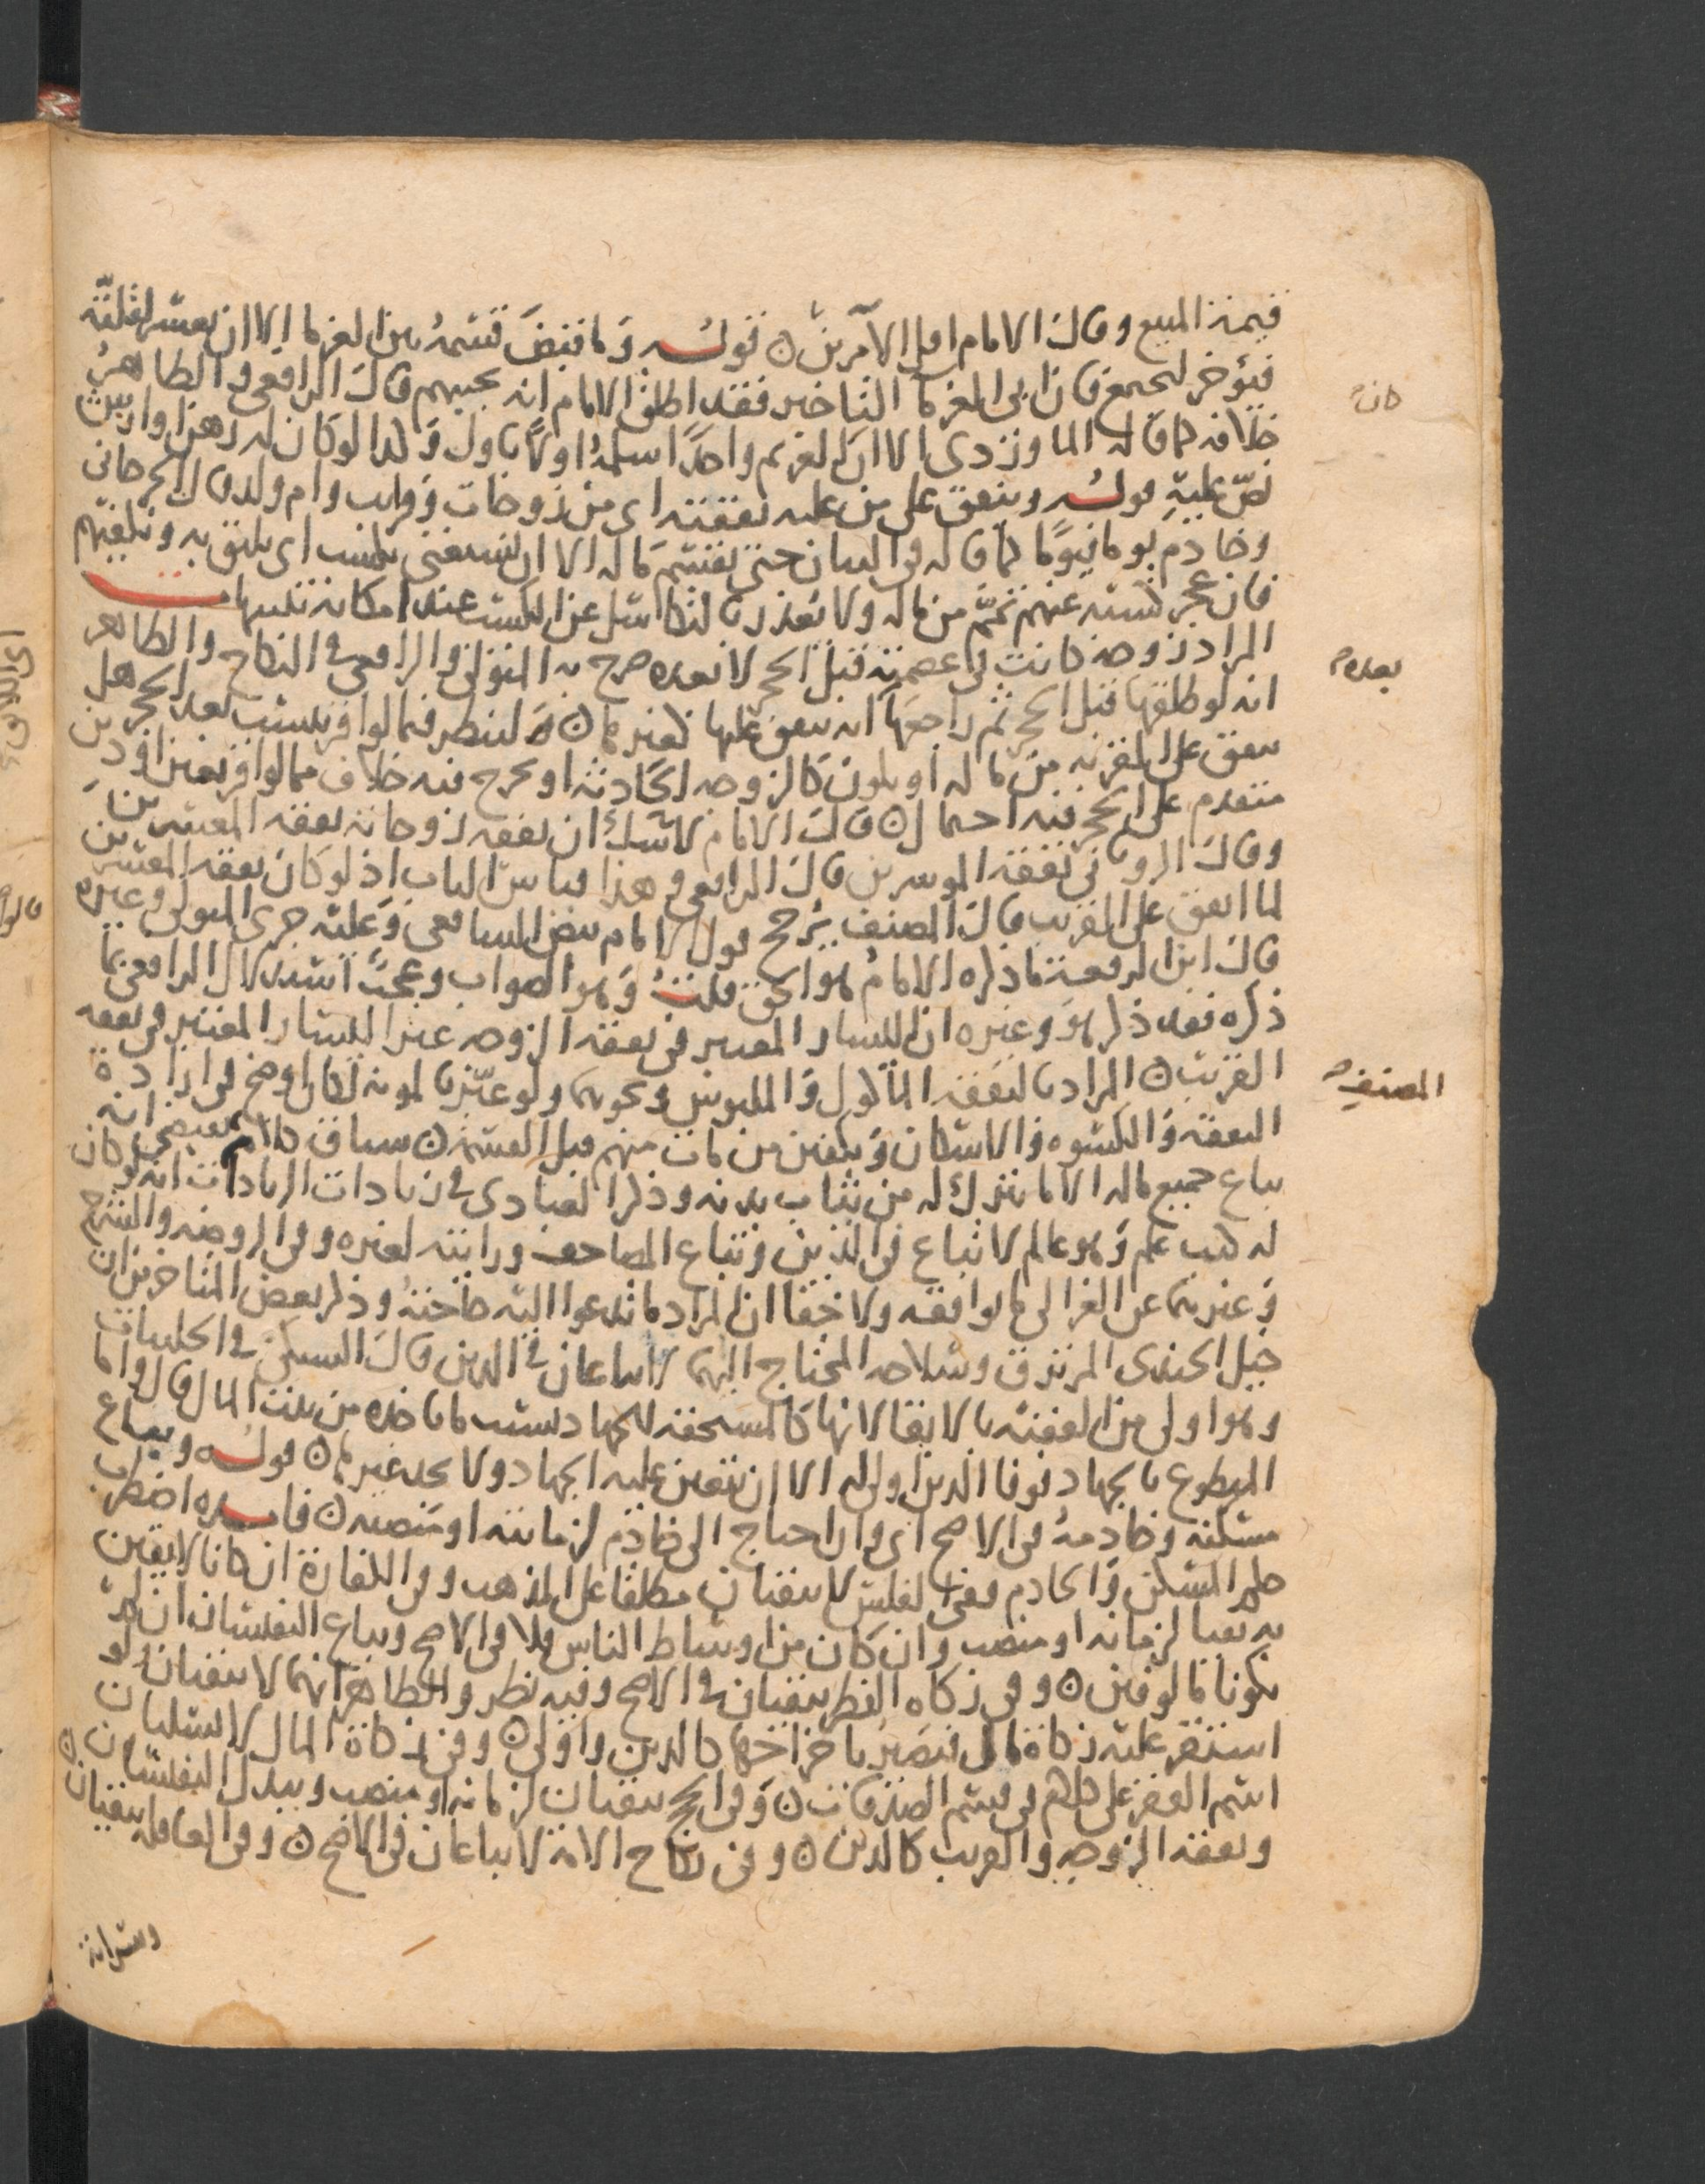 قيمة المبيع وقال الامام اقل الامرين قوله وما قبض قسمه بين الغرما الا ان يعسر لقلته
فيؤخر ليجتمع فان ابى الغرما التاخير فقد اطلق الامام انه يجيبهم قال الرافعي والظاهر
خلافه كما قاله الماوردي الا ان الغريم واحدا اسلمه اولا باول وكذا لو كان له رهن وارتهن
نص عليه قوله وينفق على من عليه نفقته اي من زوجات وقرايب وام ولد قال الجرجاني
وخادم يوما فيوما كما قاله في البيان حتى يقسم ماله الا ان يستغني بكسب اي يليق به ويكفيهم
فان عجز كسبه عنهم تمم من ماله ولا يعذر بالتكاسل عن الكسب عند امكانه
المراد زوجة كانت في عصمته قبل الحجر لا بعده صرح به المتولي والرافعي في النكاح والظاهر
انه لو طلقها قبل الحجر ثم راجعها انه ينفق عليها كغيرها ولينظر فيما لو اقر بنسب بعد الحجر هل
ينفق على المقر به من ماله او يكون كالزوجة الحادثة او يخرج فيه خلاف مما لو اقر بعين او دين
متقدم على الحجر فيه احتمال قال الامام لا شك ان نفقة زوجاته نفقة المعسرين
وقال الروياني نفقة الموسرين قال الرافعي وهذا قياس الباب اذ لو كان نفقة المعسرين
لما انفق على القريب قال المصنف يرجح قول الامام نص الشافعي وعليه جرى المتولي وغيره
قال ابن الرفعة ما ذكره الامام هو الحق قلت وهو الصواب وعجب استدلال الرافعي بما
ذكره فقد ذكر هو وغيره ان اليسار المعتبر في نفقة الزوجة غير اليسار المعتبر في نفقة
القريب المراد بالنفقة الماكول والملبوس ونحوهما ولو عبر بالمونة لكان اوضح في ارادة
النفقة والكسوة والاسكان وتكفين من مات منهم قبل القسمة سياق كلامه يقتضي انه
يباع جميع ماله الا ما يترك له من ثياب بدنه وذكر العبادي في زيادات الزيادات انه لو كان
له كتب علم وهو عالم لا تباع في الدين وتباع المصاحف ورايته لغيره وفي الروضة والشرح
وغيرهما عن الغزالي ما يوافقه ولا خفا ان المراد ما تدعوا اليه حاجته وذكر بعض المتاخرين ان
خيل الجندي المرتزق وسلاحه المحتاج اليهما لا يباعان في الدين قال السبكي في الحلبيات
وهو اولى من الفقيه بالابقا لانها كالمستحقة للجهاد بسبب ما ياخذه من بيت المال قال واما
المتطوع بالجهاد فوفا الدين اولى له الا ان يتعين عليه الجهاد ولا يجد غيرها قوله ويباع
مسكنه وخادمه في الاصح اي وان احتاج الى خادم لزمانته او منصبه فايده اضطرب
حكم المسكن والخادم ففي الفلس لا يبقيان مطلقا على المذهب وفي الكفارة ان كانا لايقين
به بقيا لزمانة او منصب وان كان من اوساط الناس فلا في الاصح ويباع النفيسان ان لم
يكونا مالوفين وفي زكاة الفطر يبقيان في الاصح وفيه نظر والظاهر انهما لا يبقيان ولو
استقر عليه زكاة مال فقصر باخراجها كالدين واولى وفي زكاة المال لا يسلبان
اسم الفقر على كلام في قسم الصدقات وفي الحج يبقيان لزمانة او منصب ويبدل النفيسان
ونفقة الزوجة والقريب كالدين وفي نكاح الامة لا يباعان في الاصح وفي العاقلة يبقيان
كان
بعده
المصنف
وسراية